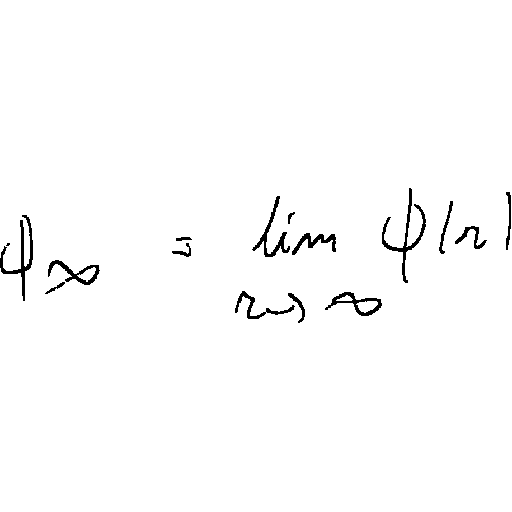 \phi_\infty = \lim_{r \to \infty} \phi(r)